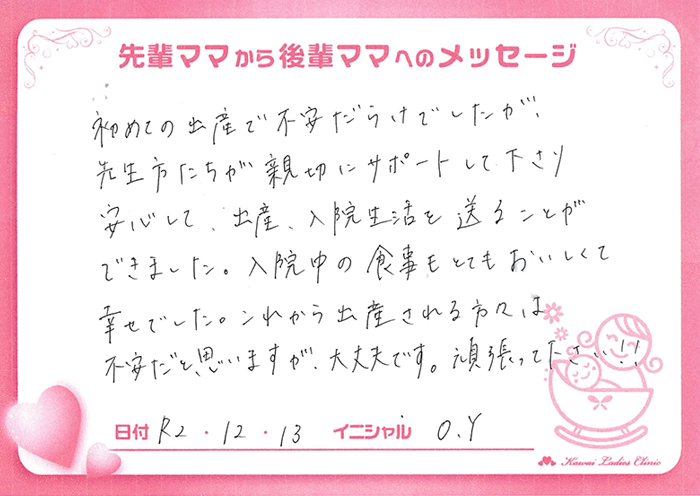 先輩ママから後輩ママへのメッセージ
初めての出産で不安だらけでしたが、
先生方たちが親切にサポートして下さり
安心して、出産、入院生活を送ることが
できました。入院中の食事もとてもおいしくて
幸せでした。これから出産される方々は
不安だと思いますが、大丈夫です。頑張って下さい!!
日付 R2・12・13 イニシャル O.Y
Kawai Ladies Clinic